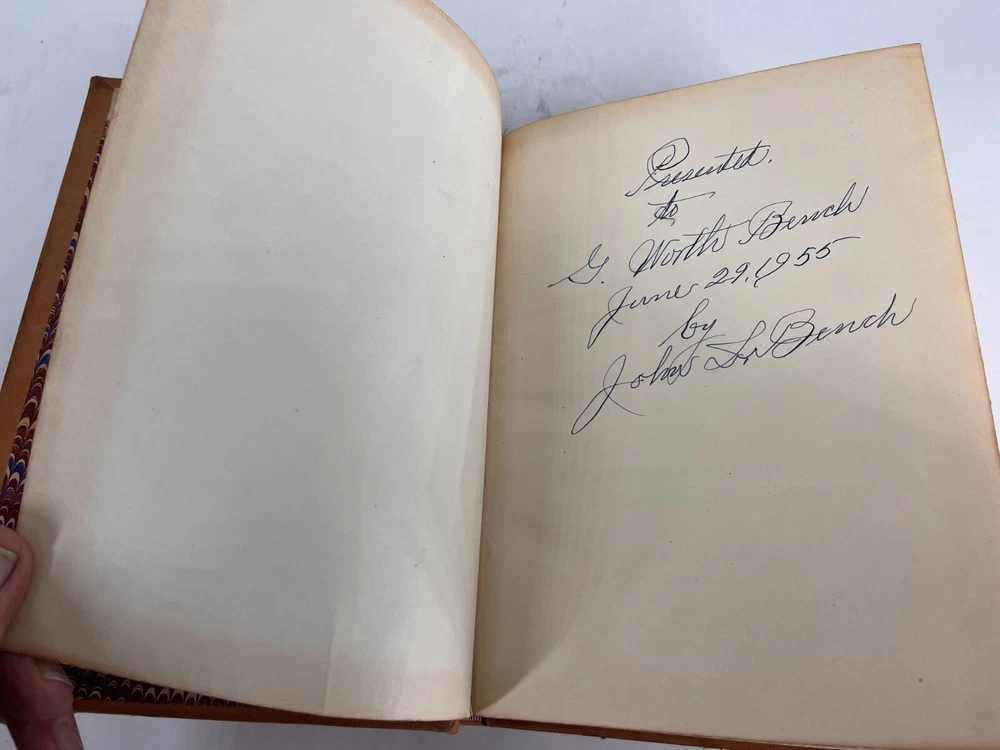 Presented.
to
G. Worth Bench
June 29, 1955
by
John L. Bench